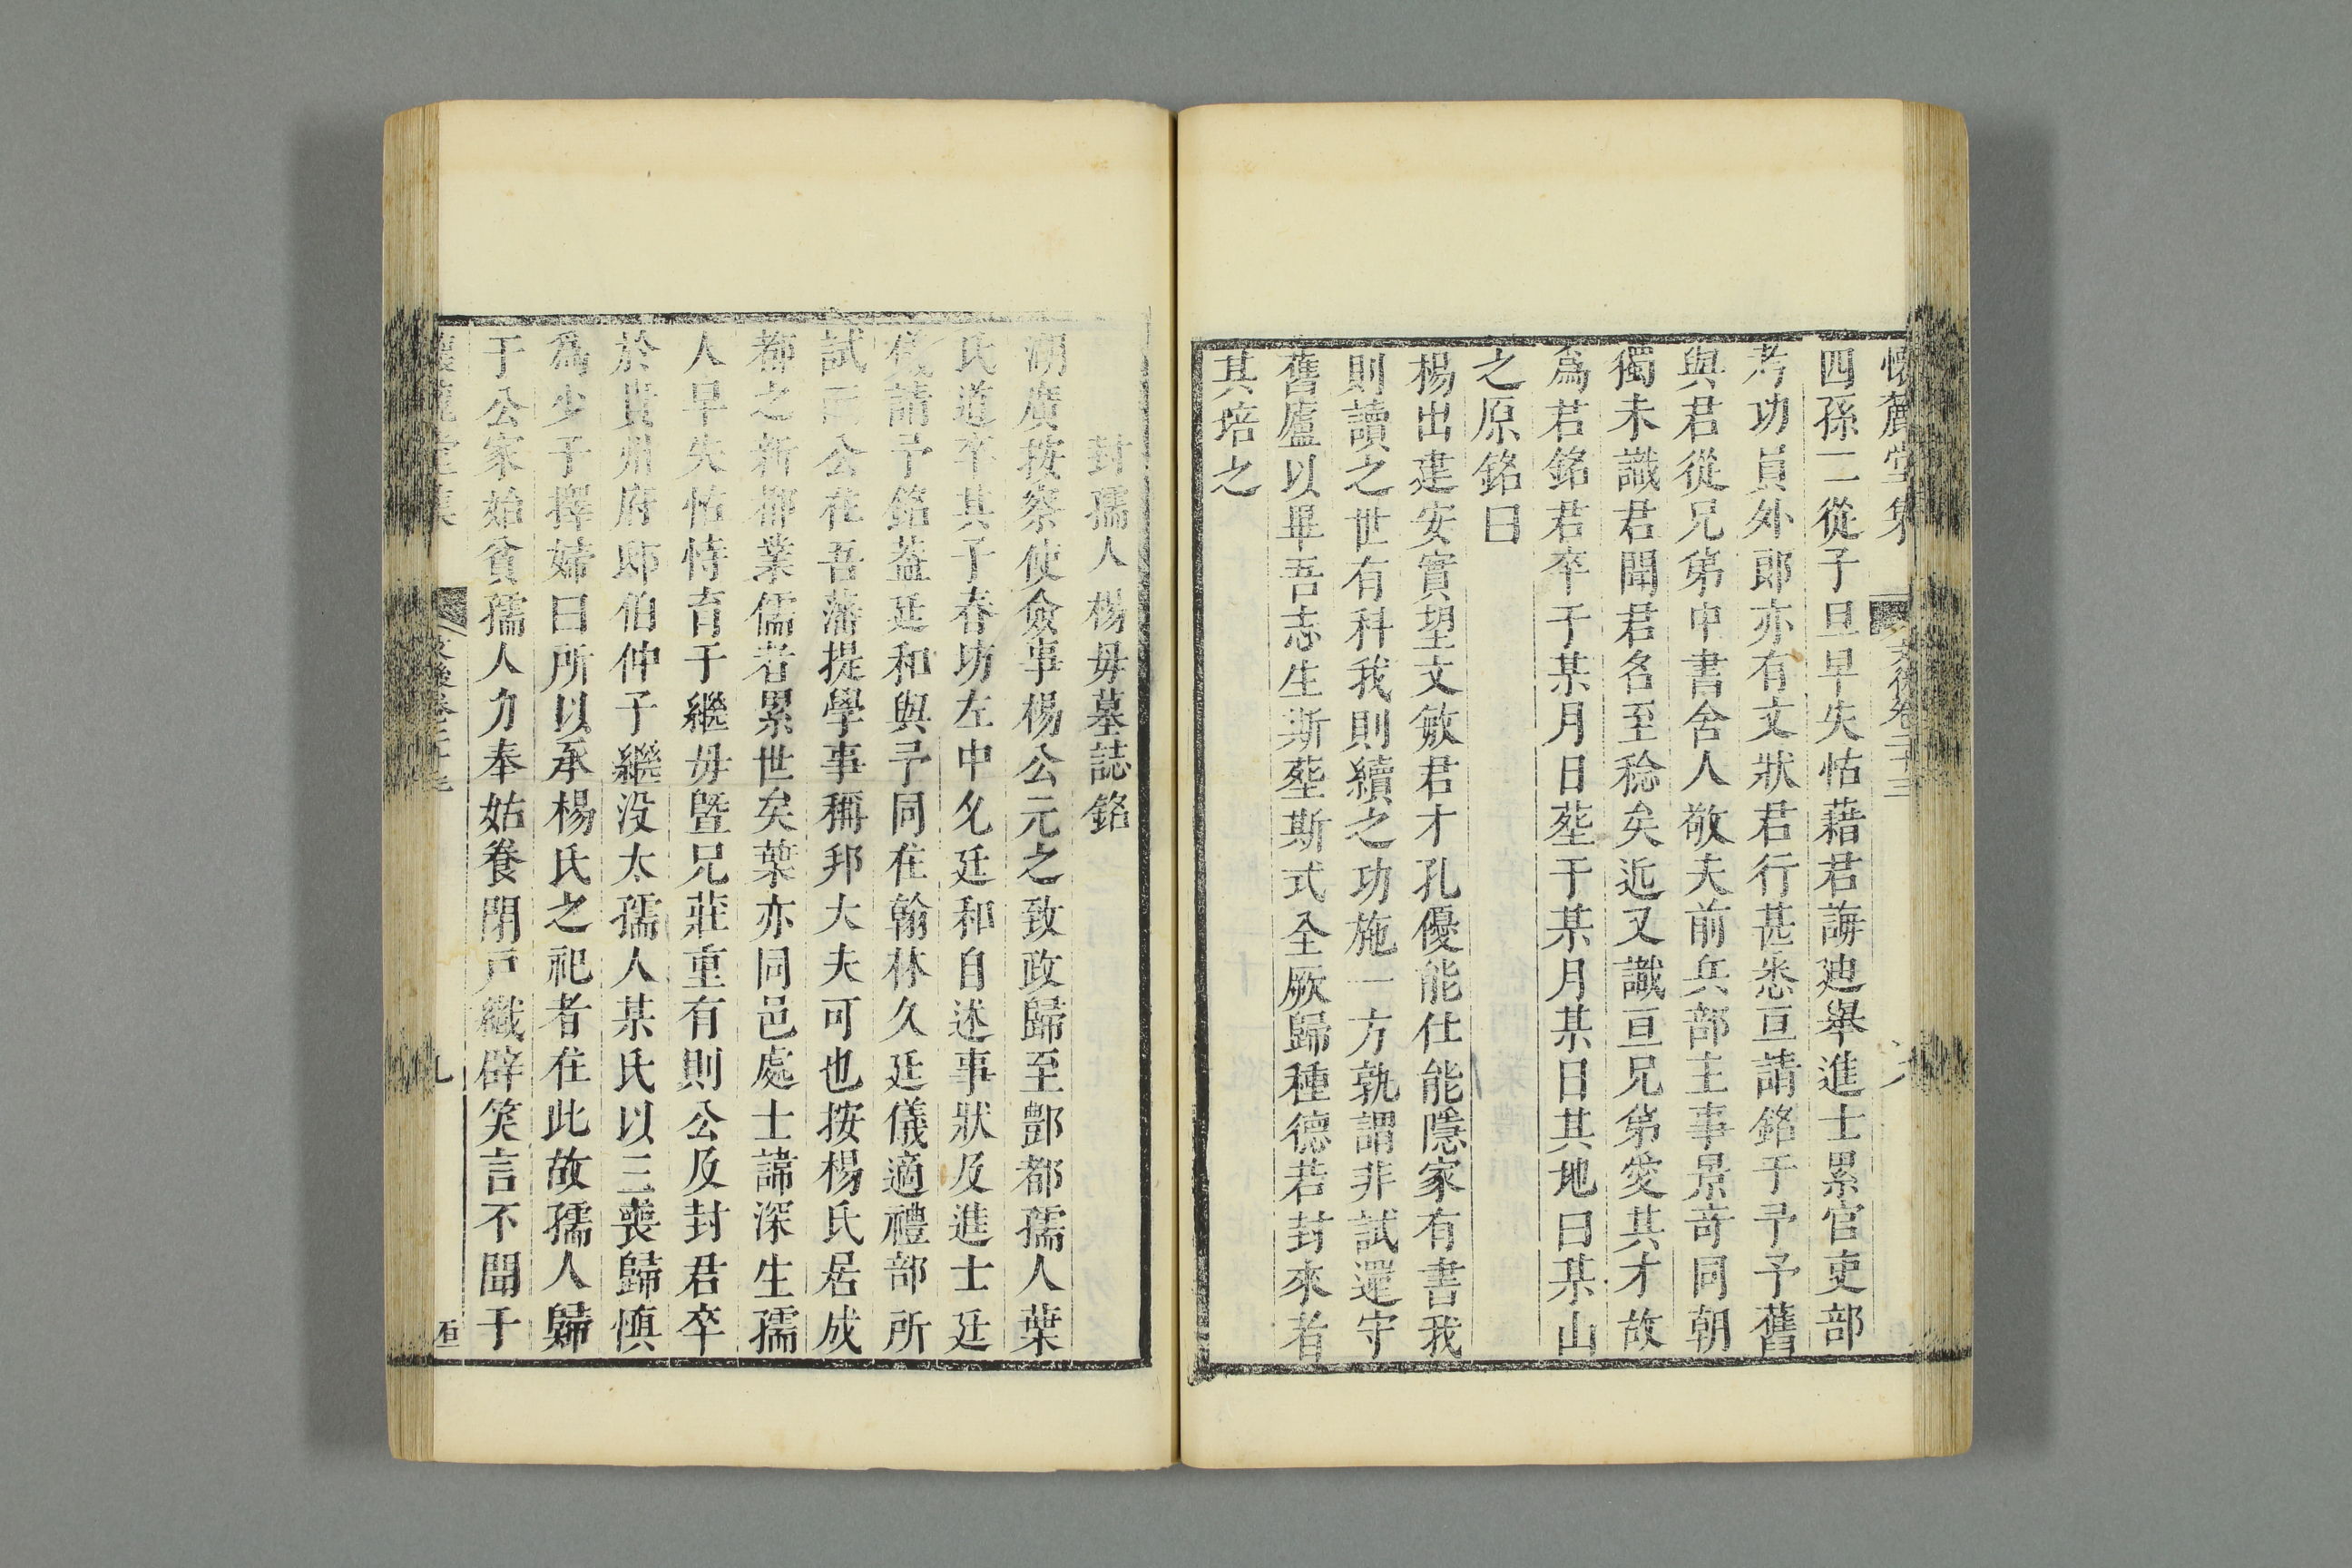 懷麓堂集 文後卷二十三 六
四孫二從子旦早失怙藉君誨廸舉進士累官吏部
考功員外郎亦有文狀君行甚悉亘請銘于予予舊
與君從兄弟中書舍人敬夫前兵部主事景奇同朝
獨未識君聞君名至稔矣近又識亘兄弟愛其才故
爲君銘君卒于某月日塟于某月某日其地曰某山
之原銘曰
楊出建安實望文敏君才孔優能仕能隱家有書我
則讀之世有科我則續之功施一方孰謂非試還守
舊廬以畢吾志生斯塟斯式全厥歸種德若封來者
其培之
封孺人楊母墓誌銘
湖廣按察使僉事楊公元之致政歸至酆都孺人葉
氏道卒其子春坊左中允廷和自述事狀及進士廷
儀請予銘葢廷和與予同在翰林久廷儀適禮部所
試而公在吾藩提學事稱邦大夫可也按楊氏居成
都之新都業儒者累世矣葉亦同邑處士諱深生孺
人早失怙恃育于繼母曁兄莊重有則公及封君卒
於貴州府邸伯仲子繼没太孺人某氏以三喪歸慎
爲少子擇婦曰所以承楊氏之祀者在此故孺人歸
于公家始貧孺人力奉姑養閉戸織辟笑言不聞于
懷麓堂集 文後卷二十三 九